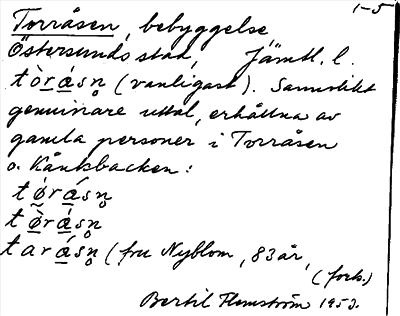 1-5
Torråsen, bebyggelse,
Östersunds stad, Jämtl. l.
tòrå̀sn̥ (vanligast). Sannolikt
genuinare uttal, erhållna av
gamla personer i Torråsen
o. Kånkbacken:
tǿrásn̥
tø̀rásn̥
tarásn̥ (fru Nyblom, 83 år,
(forts.)
Bertil Flemström 1953.